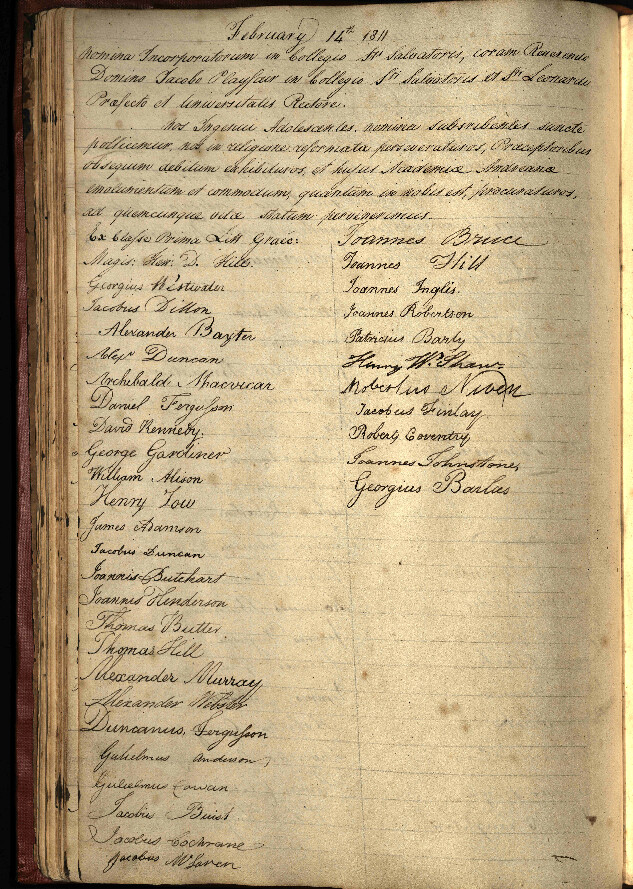 February 14th 1811
Nomina Incorporatorum in Collegio Sti Salvatoris, coram Reverendo
Domino Jacobo Playfair in Collegio Sti Salvatoris et Sti Leonardi
Præfecto et Universitatis Rectore.
Nos Ingenui Adolescentes, nomina subscribentes sancte
pollicemur, nos in religione reformata perseveraturos, Præceptoribus
obsequium debitum exhibituros, et hujus Academiæ Andreanæ
emolumentum et commodum, quantum in nobis est, procuraturos,
ad quemcunque vitæ statum pervenerimus.
Ex Classe Prima Litt Graec:
Magis: Hen: D. Hill.
Georgius Westwater
Jacobus Dillon
Alexander Baxter
Alexr Duncan
Archibald Macvicar
Daniel Fergusson
David Kennedy.
George Gardiner
William Alison
Henry Low
James Adamson
Jacobus Duncan
Joannis Butchart
Joannes Henderson
Thomas Butter
Thomas Hill
Alexander Murray
Alexander Webster
Duncanus Fergusson
Gulielmus Anderson
Gulielmus Cowan
Jacobus Buist
Jacobus Cochrane
Jacobus McLaren
Joannes Bruce
Joannes Hill
Joannes Inglis.
Joannes Robertson
Patricius Barty
Henry Wm Shaw
Robertus Niven
Jacobus Finlay
Robert Coventry
Joannes Johnstone
Georgius Barlas